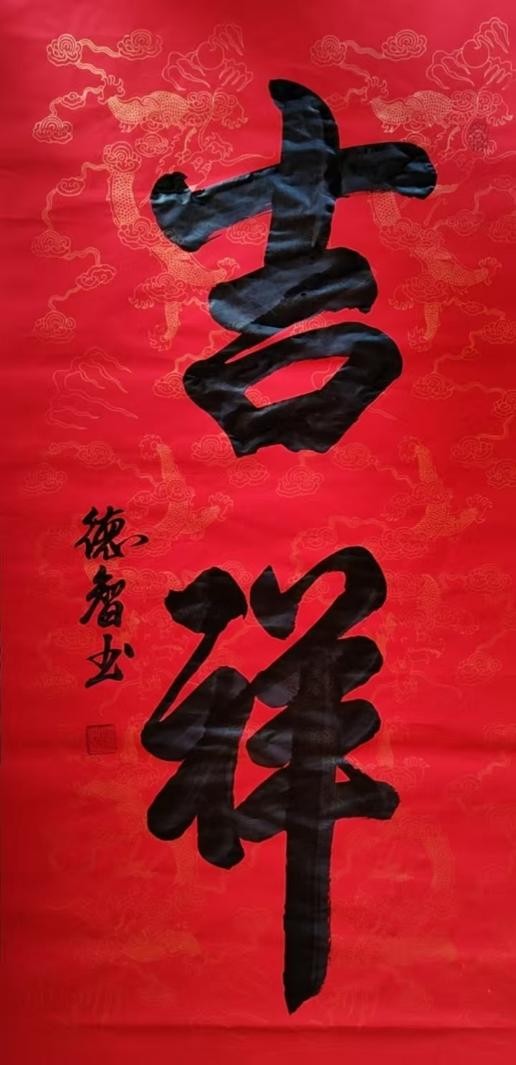 吉祥
德智书